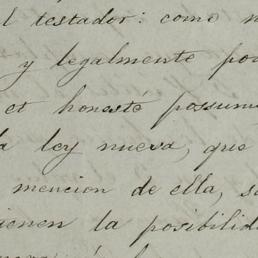 l testador: como n
y legalmente po
et honesté possum
a ley nueva, que
mencion de ella, s
ienen la posibilid